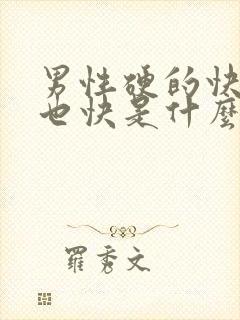 男性硬的快
也快是什麼
羅秀文